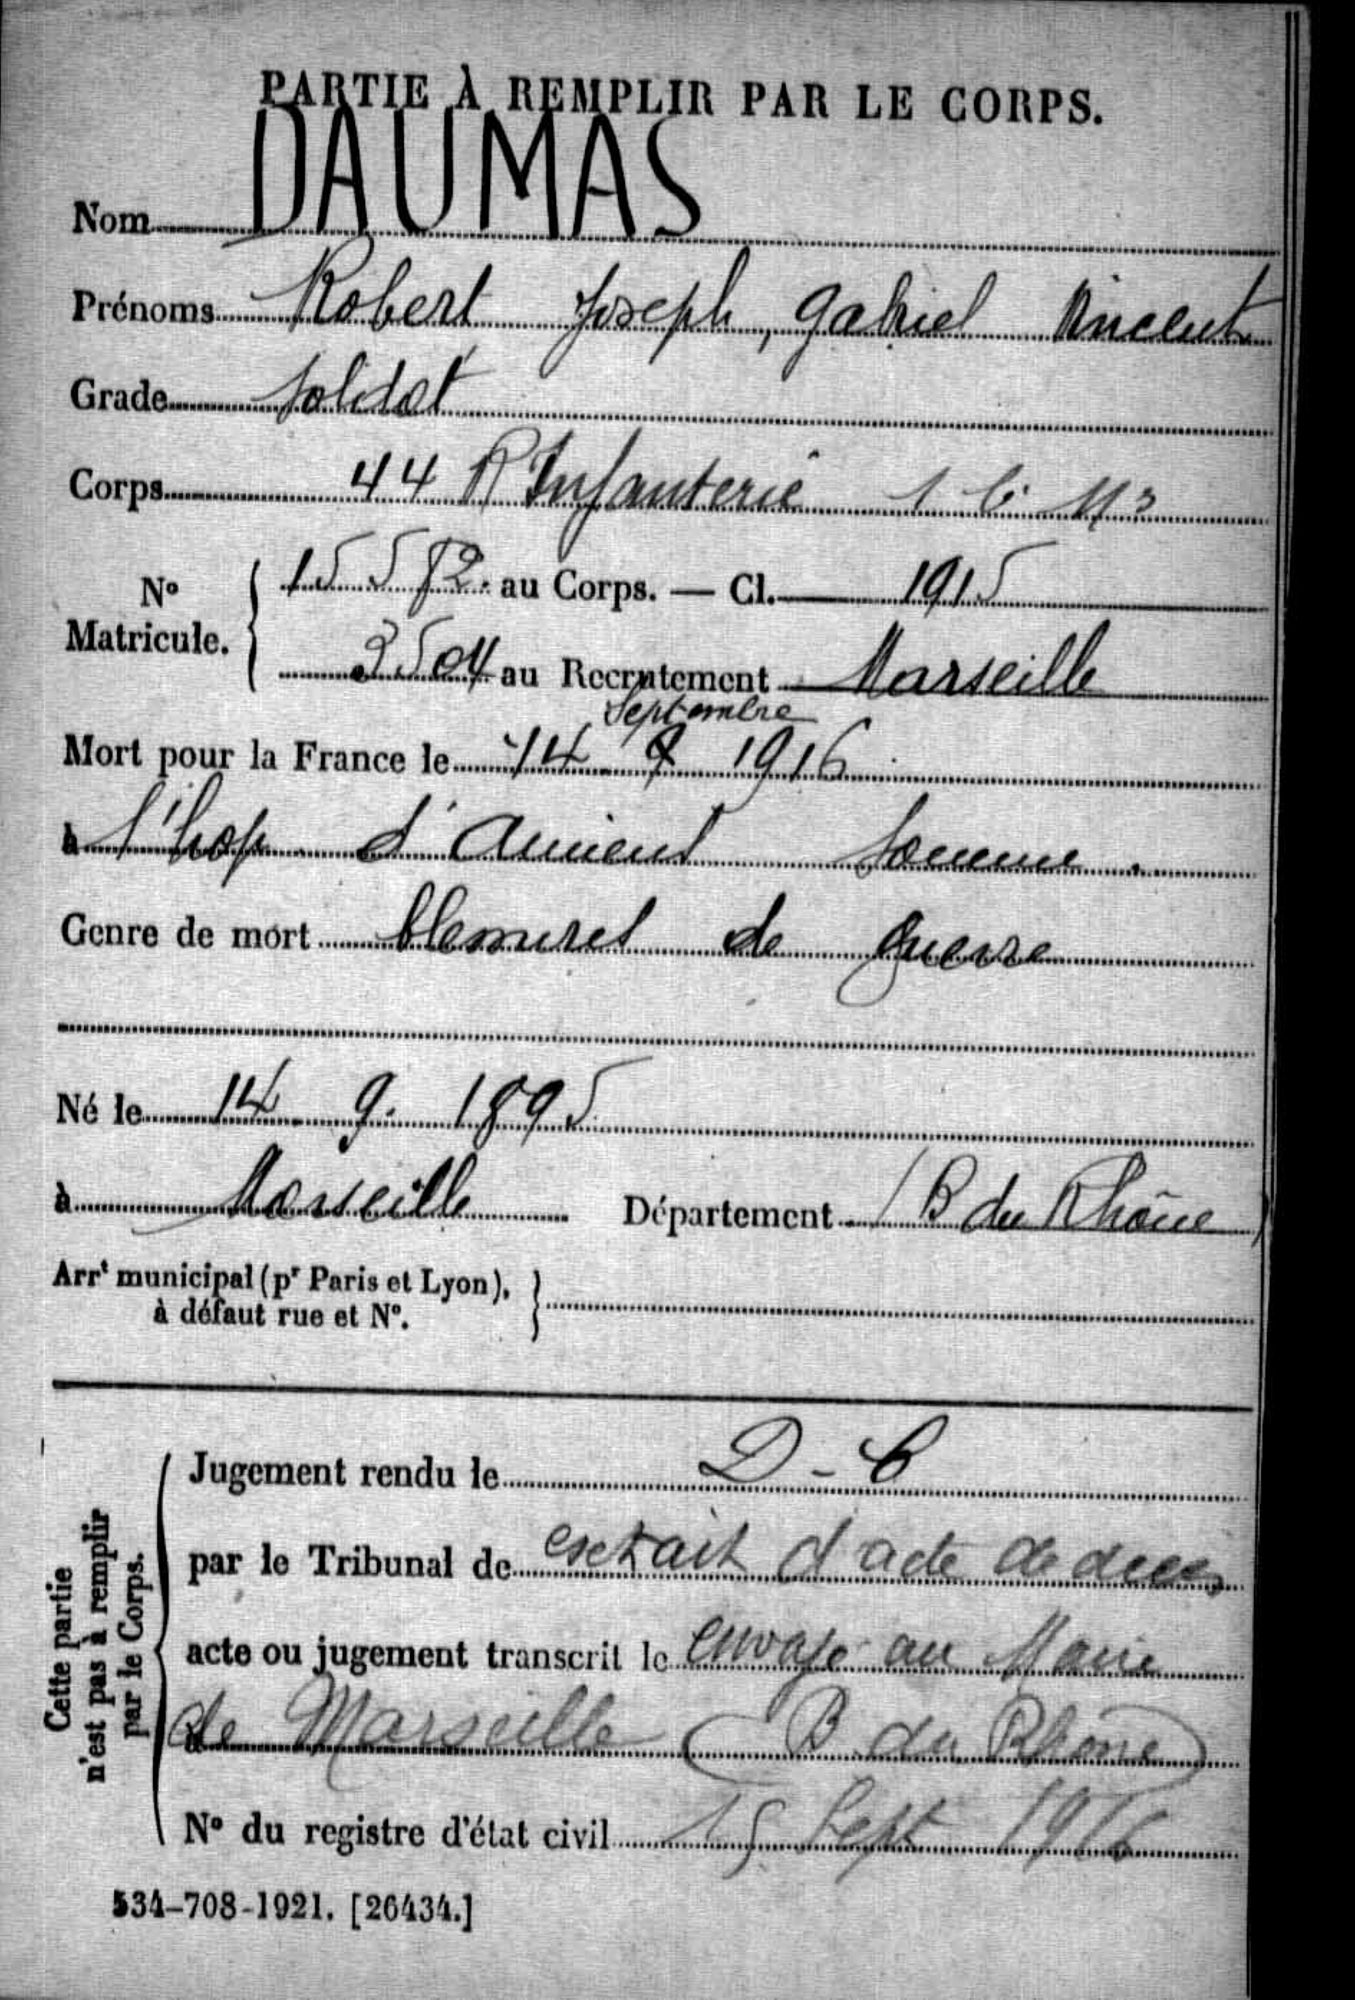 PARTIE À REMPLIR PAR LE CORPS.
Nom DAUMAS
Prénoms Robert Joseph, Gabriel Vincent
Grade Soldat
Corps 44 R Infanterie
N° Matricule. 15582 au Corps. — Cl. 1915
3504 au Recrutement Marseille
Septembre
Mort pour la France le 14 9 1916
à l'hop d'Amiens Somme.
Genre de mort blessures de guerre
Né le 14 9. 1895
à Marseille Département (B du Rhône)
Arrt municipal (pr Paris et Lyon),
à défaut rue et N°.
Cette partie
n'est pas à remplir
par le Corps.
Jugement rendu le D - C
par le Tribunal de extrait d'acte de deces
acte ou jugement transcrit le envoyé au Maire
à de Marseille (B du Rhône)
N° du registre d'état civil 15 Sept 1916
534-708-1921. [26434.]